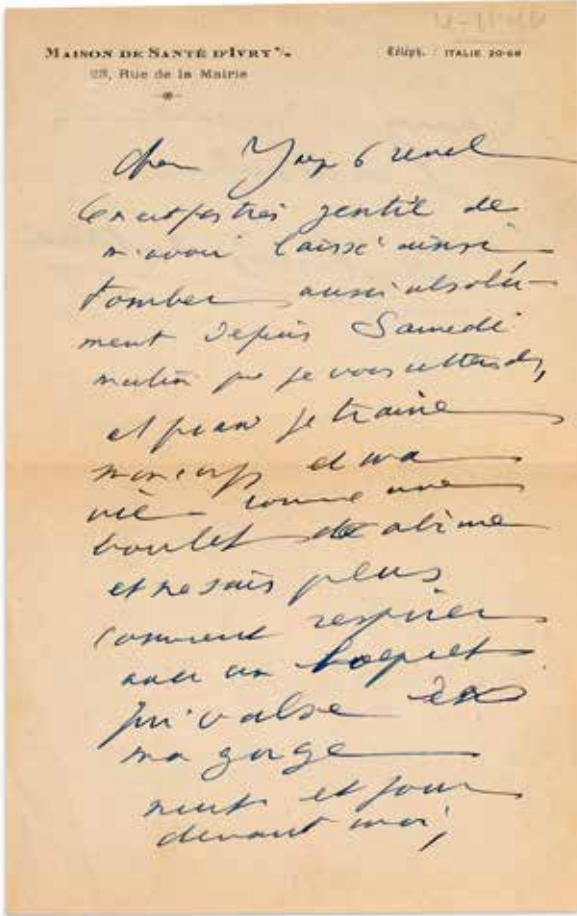 MAISON DE SANTÉ D'IVRY s/s
23, Rue de la Mairie
Téléph. : ITALIE 20-68
cher
ce n'est pas très gentil de
m'avoir laissé ainsi
tomber aussi absolu-
ment depuis Samedi
matin que je vous attends,
et je traine
mon corps et ma
vie comme une
boulet de abime
et ne sais plus
comment respirer
avec un hoquet
qui valse
ma gorge
nuit et jour
devant moi,